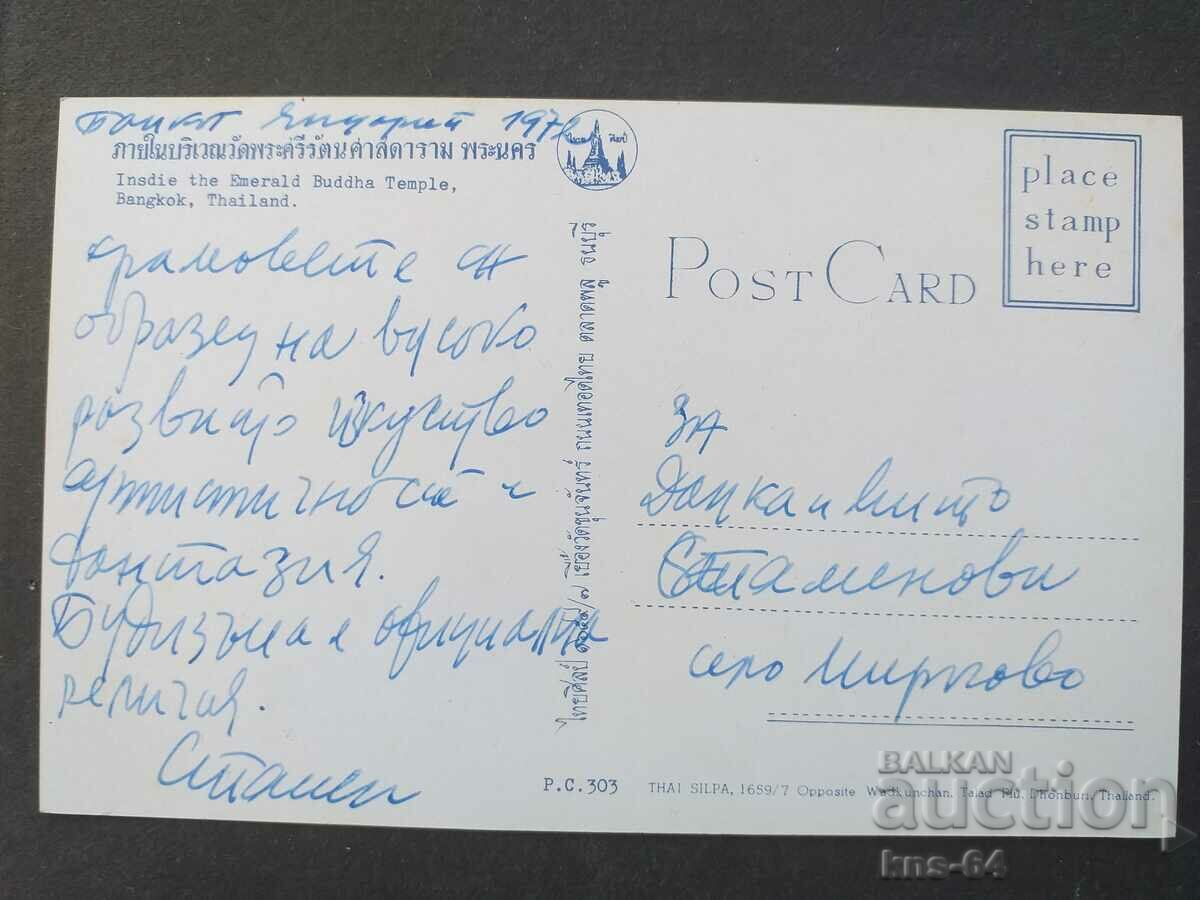 Банкок Януарий 1972
ภายในบริเวณวัดพระศรีรัตนศาสดาราม พระนคร
Insdie the Emerald Buddha Temple,
Bangkok, Thailand.
храмовете са
образец на високо
развито изкуство
артистичност и
фантазия.
Будизъма е официална
религия.
Стамен
P.C.303
POST CARD
place
stamp
here
за
Данка и Мито
Стаменови
село Мирково
THAI SILPA, 1659/7 Opposite Wadkunchan, Talad Plu, Dhonburi, Thailand.
BALKAN
auction
kns-64